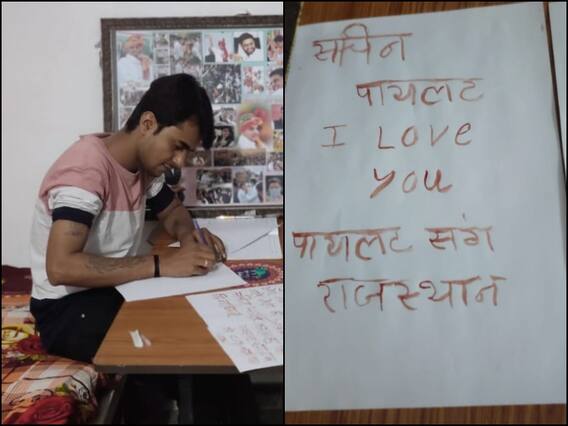 सचिन
पायलट
I Love
you
पायलट संग
राजस्थान